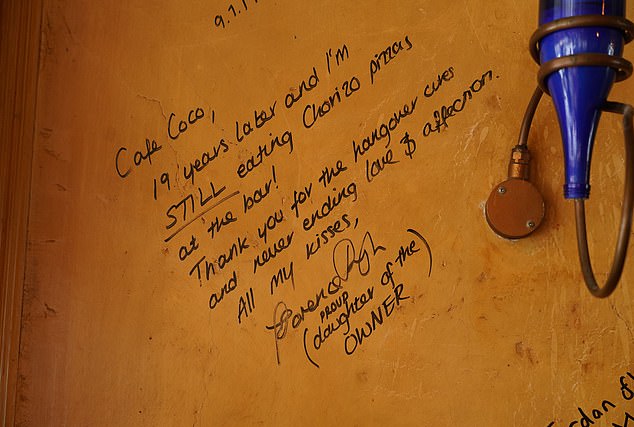 9.1.1
Cafe Coco,
19 years later and I'm
STILL eating Chorizo pizzas
at the bar!
Thank you for the hangover cures
and never ending love & affection.
All my kisses,
Florence Pugh
(PROUD
daughter of the)
OWNER